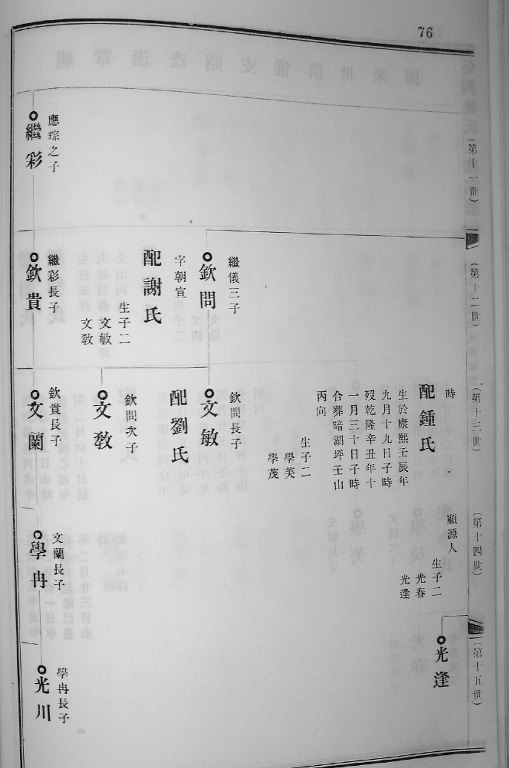 76
(第十一世)
(第十二世)
(第十三世)
(第十四世)
(第十五世)
應琮之子
繼彩
繼儀三子
欽問
字朝宣
配謝氏
生子二
文敏
文敎
繼彩長子
欽貴
時
配鍾氏
生於康熙壬辰年
九月十九日子時
歿乾隆辛丑年十
一月三十日子時
合葬暗湖坪壬山
丙向
生子二
學英
學茂
欽問長子
文敏
配劉氏
欽問次子
文敎
欽貴長子
文蘭
顧源人
生子二
光春
光逢
文蘭長子
學冉
光逢
學冉長子
光川